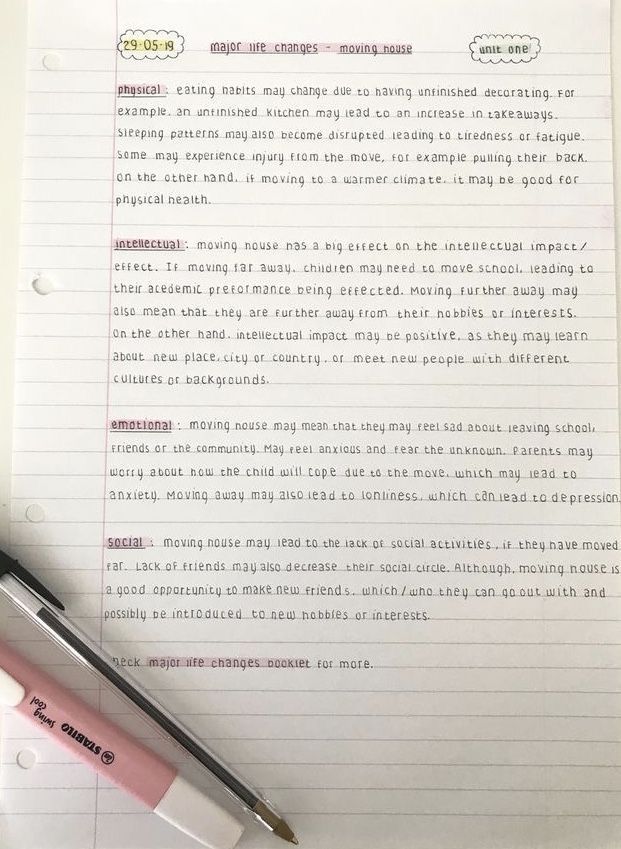 29·05·19 major life changes - moving house unit one
physical : eating habits may change due to having unfinished decorating. For
example, an unfinished kitchen may lead to an increase in takeaways.
Sleeping patterns may also become disrupted leading to tiredness or fatigue.
Some may experience injury from the move, for example pulling their back.
On the other hand, if moving to a warmer climate, it may be good for
physical health.
intellectual : moving house has a big effect on the intellectual impact/
effect. If moving far away, children may need to move school, leading to
their acedemic preformance being effected. Moving further away may
also mean that they are further away from their hobbies or interests.
On the other hand, intellectual impact may be positive, as they may learn
about new place, city or country, or meet new people with different
cultures or backgrounds.
emotional : moving house may mean that they may feel sad about leaving school,
friends or the community. May feel anxious and fear the unknown. Parents may
worry about how the child will cope due to the move, which may lead to
anxiety. Moving away may also lead to lonliness, which can lead to depression.
social : moving house may lead to the lack of social activities, if they have moved
far. Lack of friends may also decrease their social circle. Although, moving house is
a good opportunity to make new friends, which / who they can go out with and
possibly be introduced to new hobbies or interests.
heck major life changes booklet for more.
STABILO
swing
cool